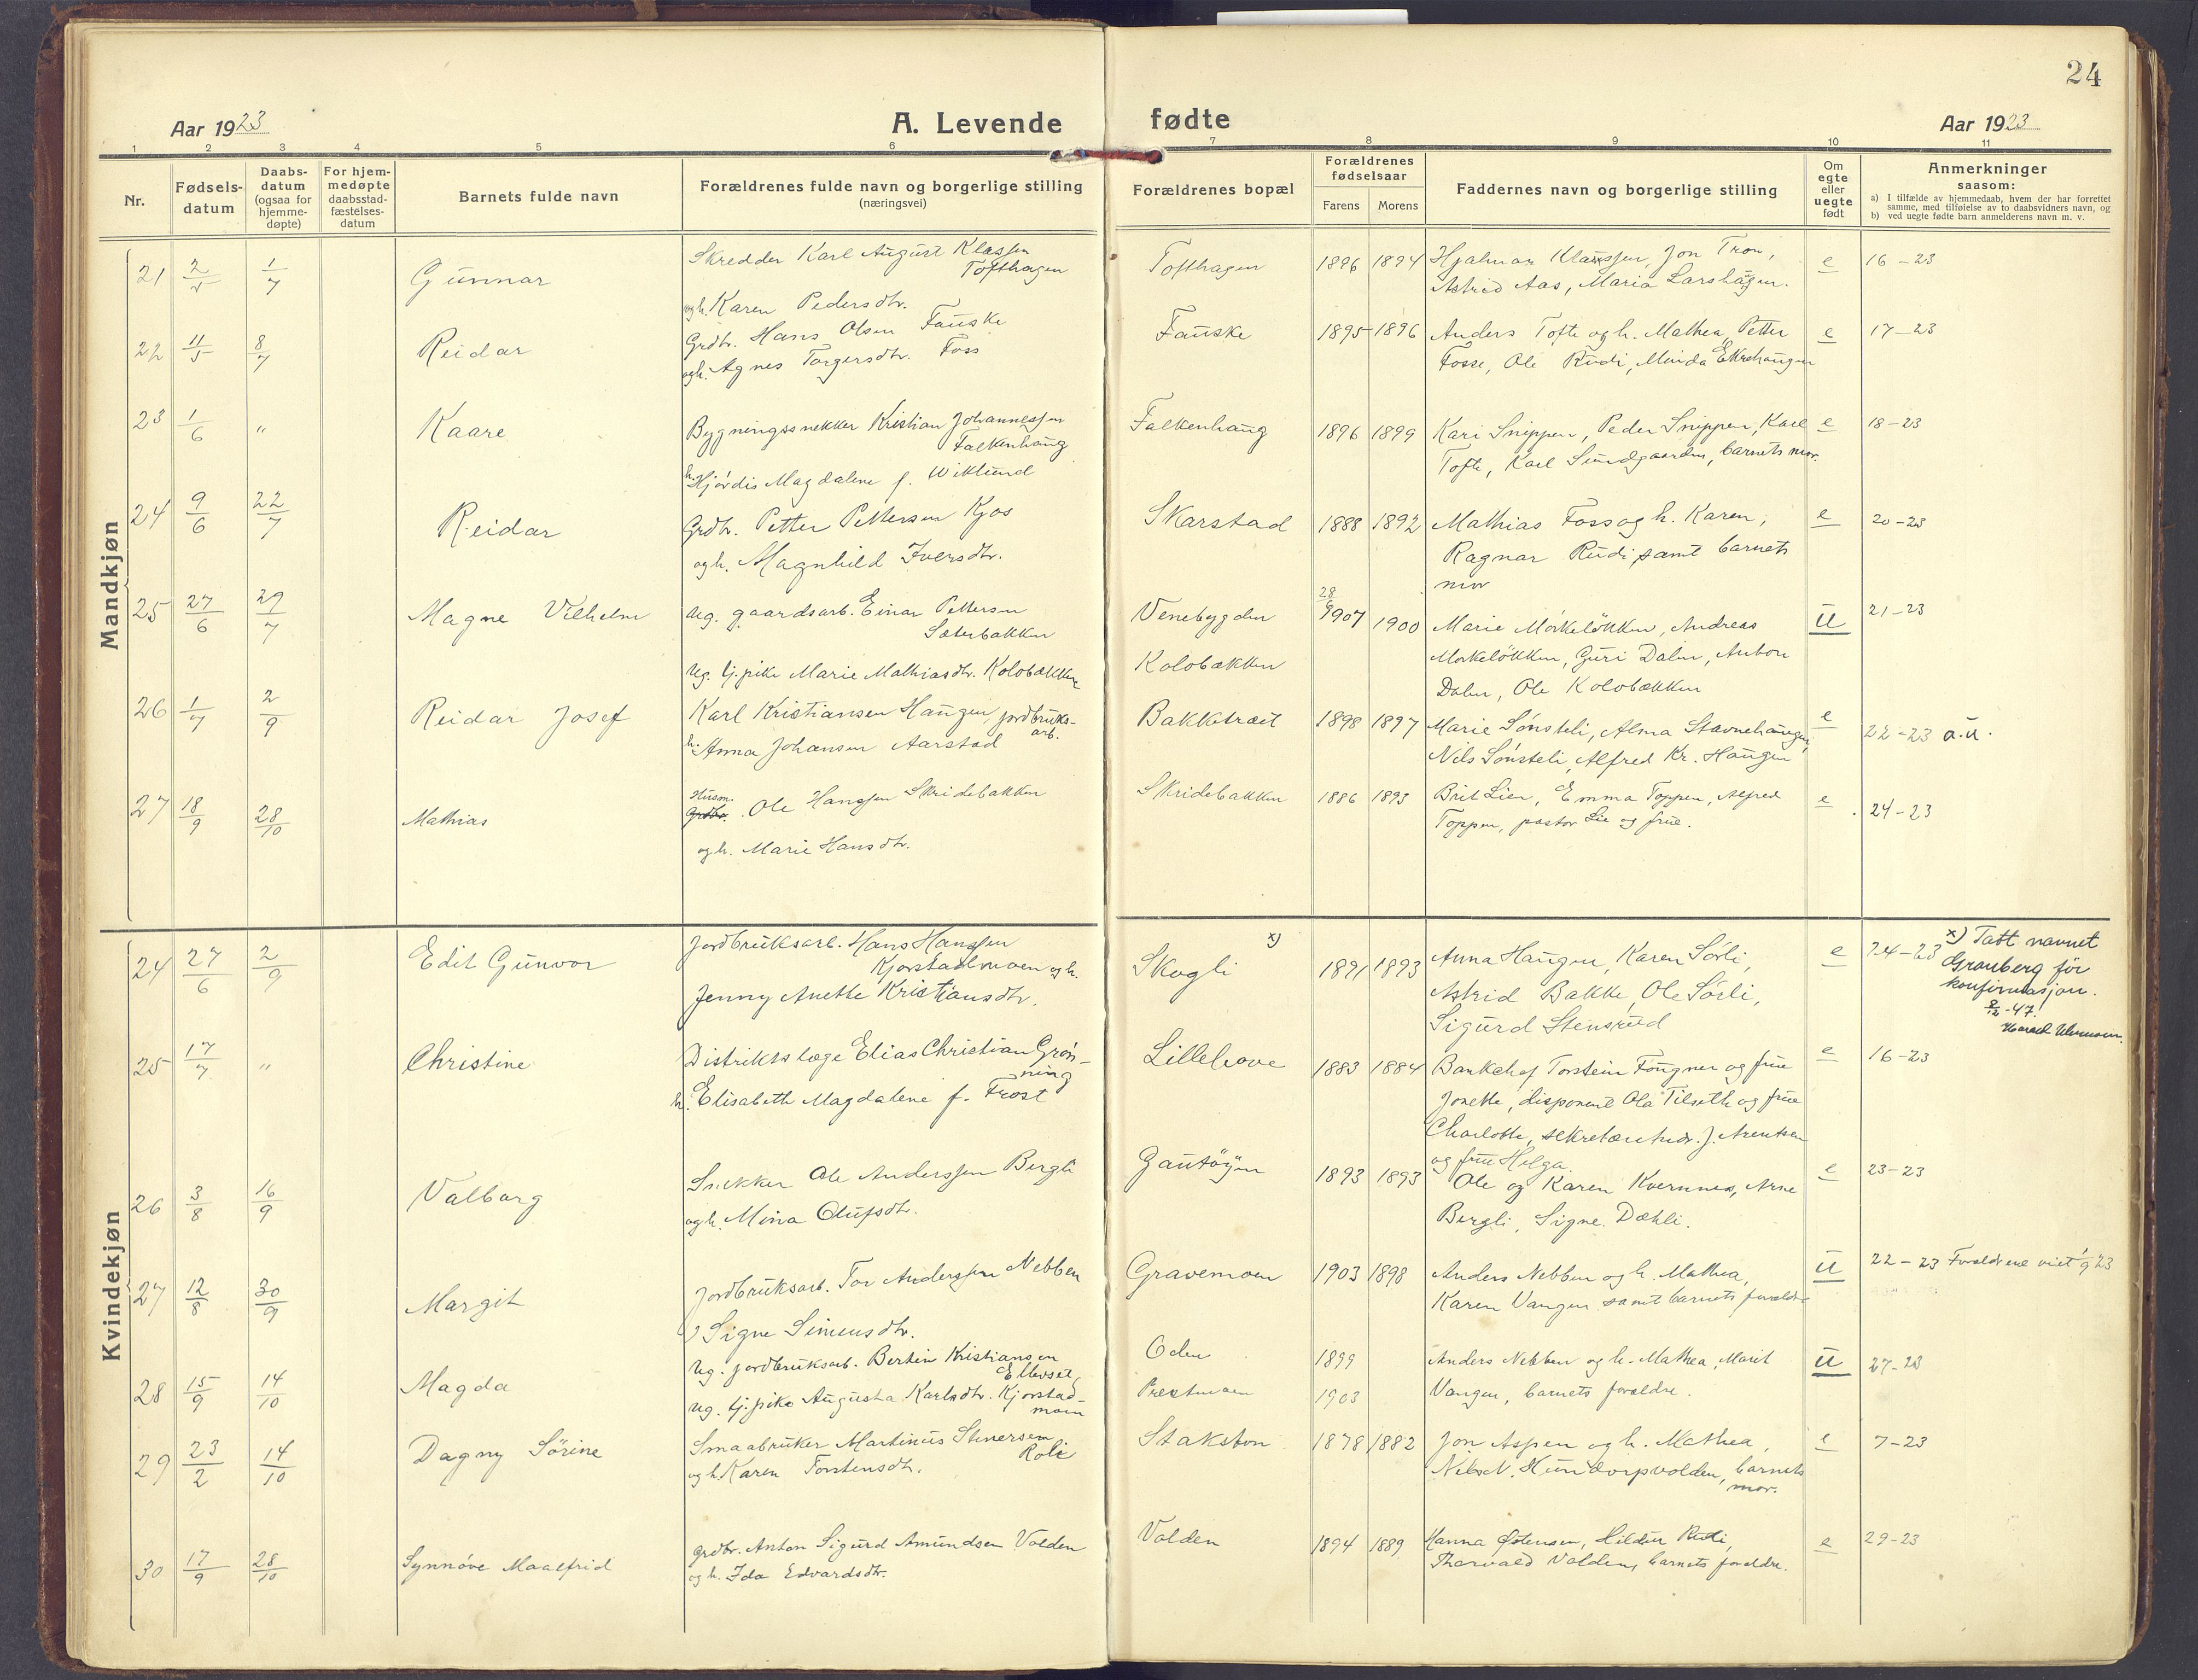 24
Aar 1923
A. Levende fødte
Aar 1923
1 2 3 4 5 6 7 8 9 10 11
Nr.
Fødsels-
datum
Daabs-
datum
(ogsaa for
hjemme-
døpte)
For hjem-
medøpte
daabsstad-
fæstelses-
datum
Barnets fulde navn
Forældrenes fulde navn og borgerlige stilling
(næringsvei)
Forældrenes bopæl
Forældrenes
fødselsaar
Farens Morens
Faddernes navn og borgerlige stilling
Om
egte
eller
uegte
født
Anmerkninger
saasom:
a) I tilfælde av hjemmedaab, hvem der har forrettet
samme, med tilføielse av to daabsvidners navn, og
b) ved uegte fødte barn anmelderens navn m. v.
Mandkjøn
21 2/5 1/7 Gunnar
Skredder Karl August Klassen
Tofthagen
og h. Karen Pedersdtr.
Tofthagen 1896 1894
Hjalmar Klaussen, Jon Tron,
Astrid Aas, Maria Larshagen.
e 16-23
22 11/5 8/7 Reidar
Grdbr. Hans Olsen Fauske
og h. Agnes Torgersdtr. Foss
Fauske 1895 1896
Anders Tofte og h. Mathea, Petter
Fosse, Ole Rudi, Minda Ekrehaugen
e 17-23
23 1/6 " Kaare
Bygningssnekker Kristian Johannessen
Falkenhaug
h. Hjördis Magdalene f. Wiklund
Falkenhaug 1896 1899
Kari Snippen, Peder Snippen, Karl
Tofte, Karl Sundgaarden, barnets mor.
e 18-23
24 9/6 22/7 Reidar
Grdbr. Petter Pettersen Kjos
og h. Magnhild Iversdtr.
Skarstad 1888 1892
Mathias Foss og h. Karen,
Ragnar Rudi samt barnets
mor
e 20-23
25 27/6 29/7 Magne Vilhelm
Ug. gaardsarb. Einar Pettersen
Sæterbakken
Ug. tj. pike Marie Mathiasdtr. Kolobækken
Venebygden 28/9 1907 1900
Kolobækken
Marie Mörkelökken, Andreas
Morkelökken, Guri Dalen, Anton
Dalen, Ole Kolobækken
u 21-23
26 1/7 2/9 Reidar Josef
Karl Kristiansen Haugen, jordbruks-
arb.
h. Anna Johansen Aarstad
Bakketræet 1898 1897
Marie Sönsteli, Alma Stavnehaugen,
Nils Sönsteli, Alfred Kr. Haugen
e 22-23 a.u.
27 18/9 28/10 Mathias
Husm.
Grdbr. Ole Hanssen Skridebakken
og h. Marie Hansdtr.
Skridebakken 1886 1893
Brit Lien, Emma Toppen, Alfred
Toppen, pastor Lie og frue.
e 24-23
Kvindekjøn
24 27/6 2/9 Edit Gunvor
Jordbruksarb. Hans Hanssen
Kjorstadmoen og h.
Jenny Anette Kristiansdtr.
x)
Skogli 1891 1893
Anna Haugen, Karen Sörli,
Astrid Bakke, Ole Sörli,
Sigurd Stensrud
e 24-23
x) Tatt navnet
Granberg før
konfirmasjon.
2/12-47.
25 17/7 " Christine
Distriktslæge Elias Christian Grön-
ning
h. Elisabeth Magdalene f. Frost
Lillehove 1883 1884
Bankchef Torstein Fougner og frue
Jonette, disponent Ola Tilseth og frue
Charlotte, sekretær J. Arentsen
og frue Helga.
e 16-23
26 3/8 16/9 Valborg
Snekker Ole Anderssen Bergli
og h. Mina Olufsdtr.
Gautöyen 1893 1893
Ole og Karen Kvernnes, Arne
Bergli, Signe Dæhli.
e 23-23
27 12/8 30/9 Margit
Jordbruksarb. Tor Anderssen Nebben
Signe Simensdtr.
Gravemoen 1903 1898
Anders Nebben og h. Mathea,
Karen Vangen samt barnets forældre
u 22-23 Forældrene viet 1/9 23
28 15/9 14/10 Magda
Ug. jordbruksarb. Bertin Kristiansen
Ellevset,
Ug. tj. pike Augusta Karlsdtr. Kjorstad-
moen
Oden 1899
Prestmoen 1903
Anders Nebben og h. Mathea, Marit
Vangen, barnets forældre.
u 27-23
29 23/2 14/10 Dagny Sörine
Smaabruker Martinus Stenersen
Roli
og h. Karen Torstensdtr.
Stakston 1878 1882
Jon Aspen og h. Mathea,
Nils N. Hundorpvolden, barnets
mor.
e 7-23
30 17/9 28/10 Synnöve Maalfrid
Grdbr. Anton Sigurd Amundsen Volden
og h. Ida Edvardsdtr.
Volden 1894 1889
Hanna Østensen, Hildur Rudi,
Thorvald Volden, barnets forældre.
e 29-23